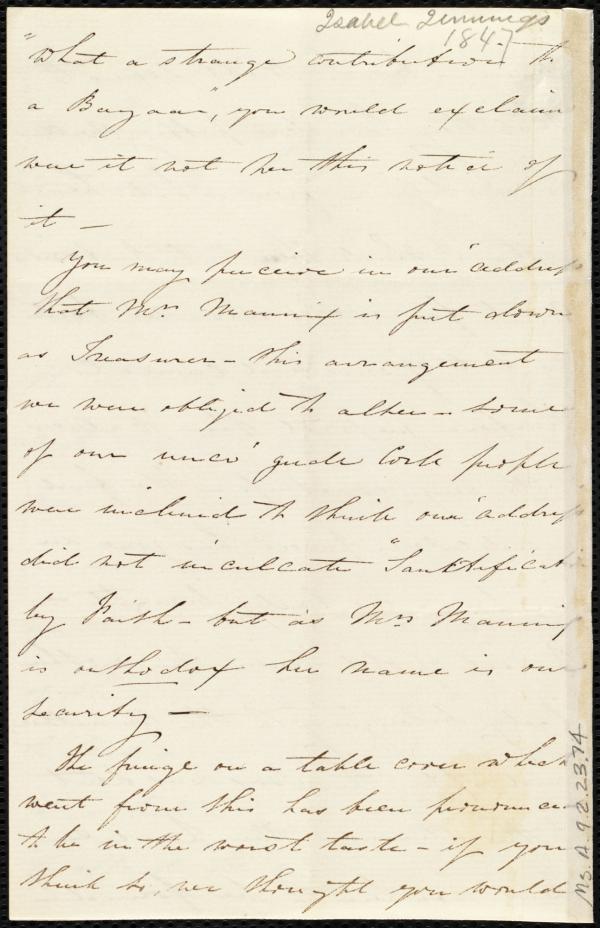 Isabel Jennings
1847
"What a strange contribution to
a Bazaar", you would exclaim
were it not for this notice of
it —
You may perceive in our "address"
that Mrs Manning is put down
as Treasurer – this arrangement
we were obliged to alter – some
of our unco' gude Cork people
were inclined to think our "address"
did not inculcate "Sanktificat
by Faith – but as Mrs Manning
is orthodox her name is our
security —
The fringe on a table cover which
went from this has been pronounced
to be in the worst taste – if you
think so, we thought you would
Ms. A. 9.2.23.74